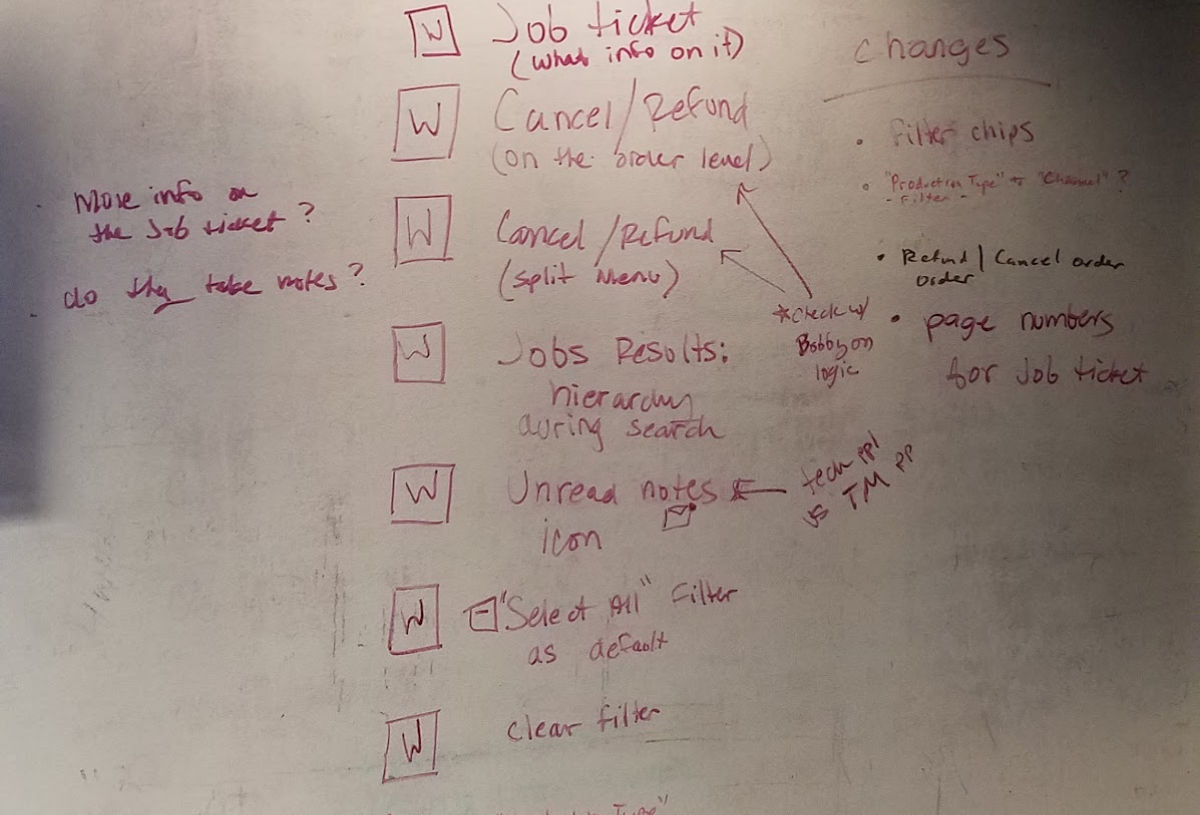 W Job ticket
(what info on it)
W Cancel/Refund
(on the order level)
W Cancel/Refund
(split menu)
W Jobs Results:
hierarchy
during search
W Unread notes
icon
W "Select All" Filter
as default
W clear filter
Type"
More info on
the Job ticket?
do they take notes?
*check w/
Bobby on
logic
tech ppl
vs TM PP
Changes
• filter chips
• "Production Type" to "Channel"?
- Filter -
• Refund/Cancel order
order
• page numbers
for Job ticket